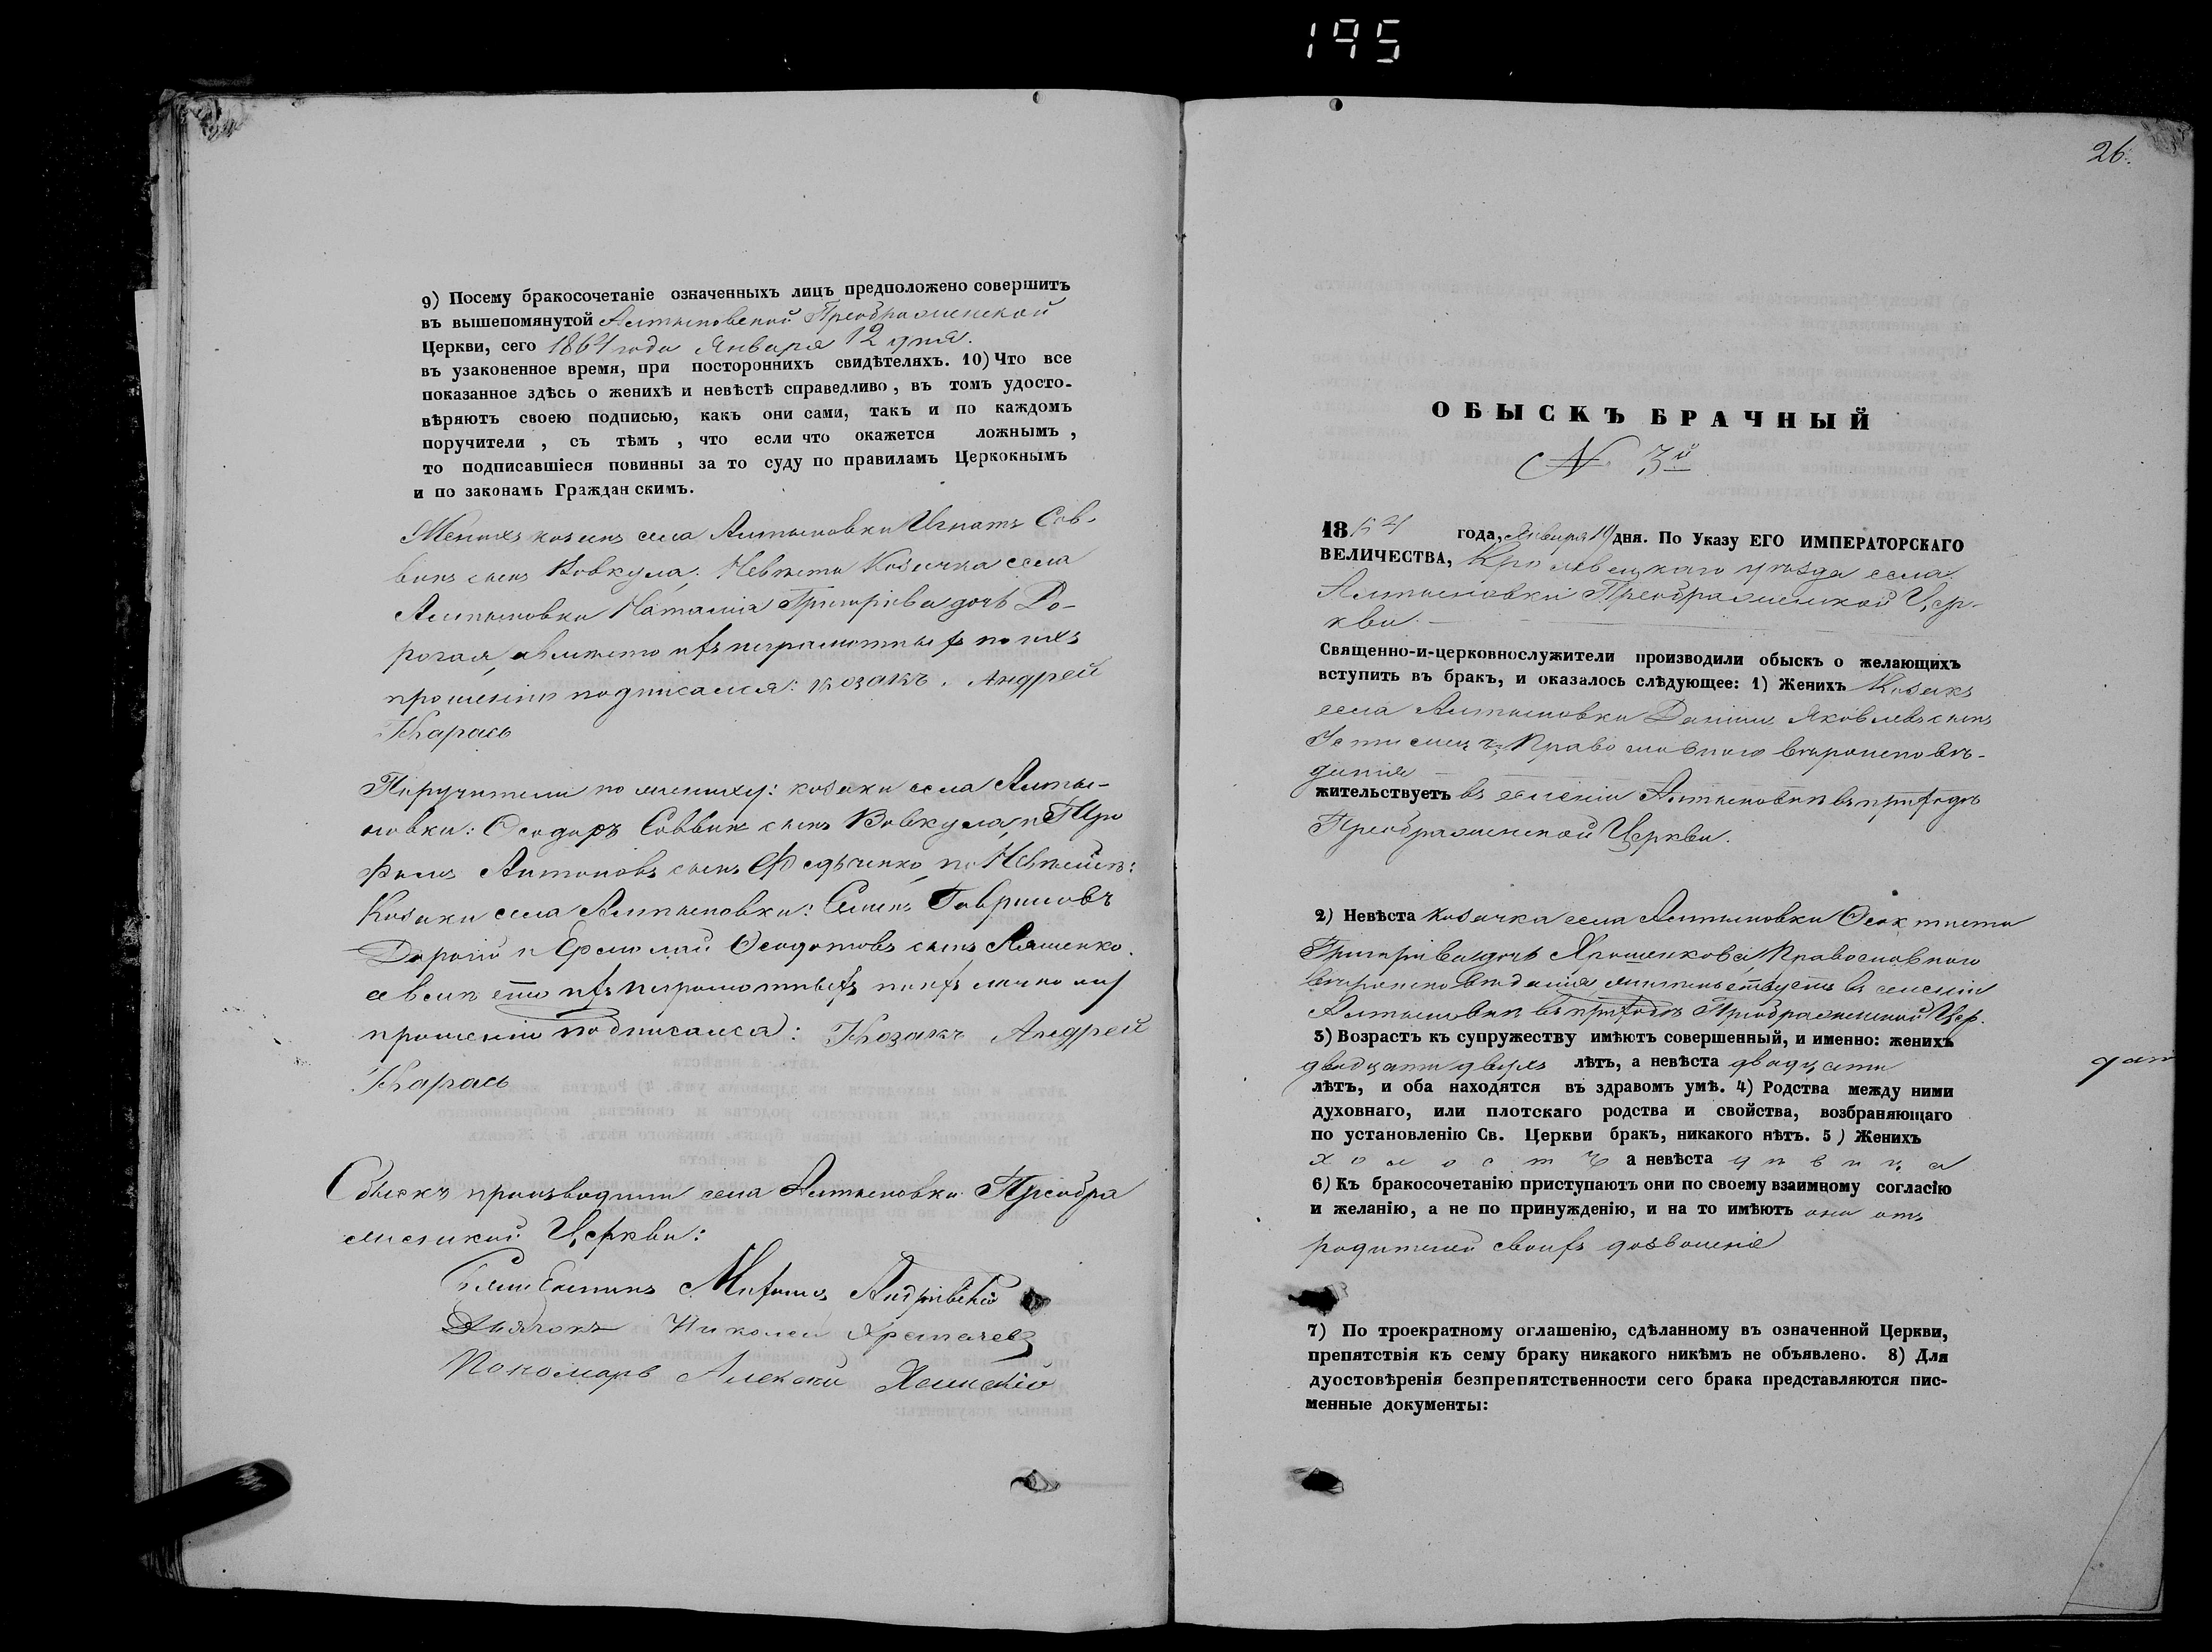 195
9) Посему бракосочетаніе означенныхъ лицъ предположено совершить
въ вышепомянутой Алтыновской Преображенской
Церкви, сего 1864 года Января 12 дня.
въ узаконенное время, при постороннихъ свидѣтеляхъ. 10) Что все
показанное здѣсь о женихѣ и невѣстѣ справедливо, въ томъ удосто-
вѣряютъ своею подписью, какъ они сами, такъ и по каждомъ
поручители, съ тѣмъ, что если что окажется ложнымъ,
то подписавшіеся повинны за то суду по правиламъ Церкокнымъ
и по законамъ Граждан скимъ.
Женихъ козакъ села Алтыновки Игнатъ Сав-
винъ сынъ Вовкула. Невѣста Козачка села
Алтыновки Наталія Григоріева дочь До-
рогая, а вместо ихъ неграмотныхъ по ихъ
прошенію подписался: козакъ. Андрей
Карась
Поручители по жениху: козаки села Алты-
новки: Ѳеодоръ Саввинъ сынъ Вовкула, и Тро
фимъ Антоновъ сынъ Федченко, по Невѣсте:
Козаки села Алтыновки: Гавриловъ
и Ермолай Ѳеодотовъ сынъ Ляшенко.
прошенію подписался: Козакъ Андрей
Карась
Обыскъ производили села Алтыновки Преобра
женской Церкви:
Священникъ Андріевскій
Дьячокъ Николай
Пономарь Алексей
26.
ОБЫСКЪ БРАЧНЫЙ
№ 3й
1864 года, Января 19 дня. По Указу ЕГО ИМПЕРАТОРСКАГО
ВЕЛИЧЕСТВА, Кролевецкаго уѣзда села
Алтыновки Преображенской Цер-
кви.
Священно-и-церковнослужители производили обыскъ о желающихъ
вступить въ бракъ, и оказалось слѣдующее: 1) Женихъ Козакъ
села Алтыновки Даніилъ Яковлевъ сынъ
Православного вѣроисповѣ-
данія
жительствуетъ въ селеніи Алтыновки въ приходѣ
Преображенской Церкви.
2) Невѣста козачка села Алтыновки Ѳеоктиста
Григоріева дочь Православного
вѣроисповѣданія жительствуетъ въ селеніи
Алтыновки въ приходѣ Преображенской Цер.
3) Возрастъ къ супружеству имѣютъ совершенный, и именно: женихъ
двадцати двухъ лѣтъ, а невѣста двадцати
лѣтъ, и оба находятся въ здравомъ умѣ. 4) Родства между ними
духовнаго, или плотскаго родства и свойства, возбраняющаго
по установленію Св. Церкви бракъ, никакого нѣтъ. 5) Женихъ
холостъ а невѣста дѣвица
6) Къ бракосочетанію приступаютъ они по своему взаимному согласію
и желанію, а не по принужденію, и на то имѣютъ они отъ
родителей своихъ дозволеніе
7) По троекратному оглашенію, сдѣланному въ означенной Церкви,
препятствія къ сему браку никакого никѣмъ не объявлено. 8) Для
дуостовѣренія безпрепятственности сего брака представляются пис-
менные документы: